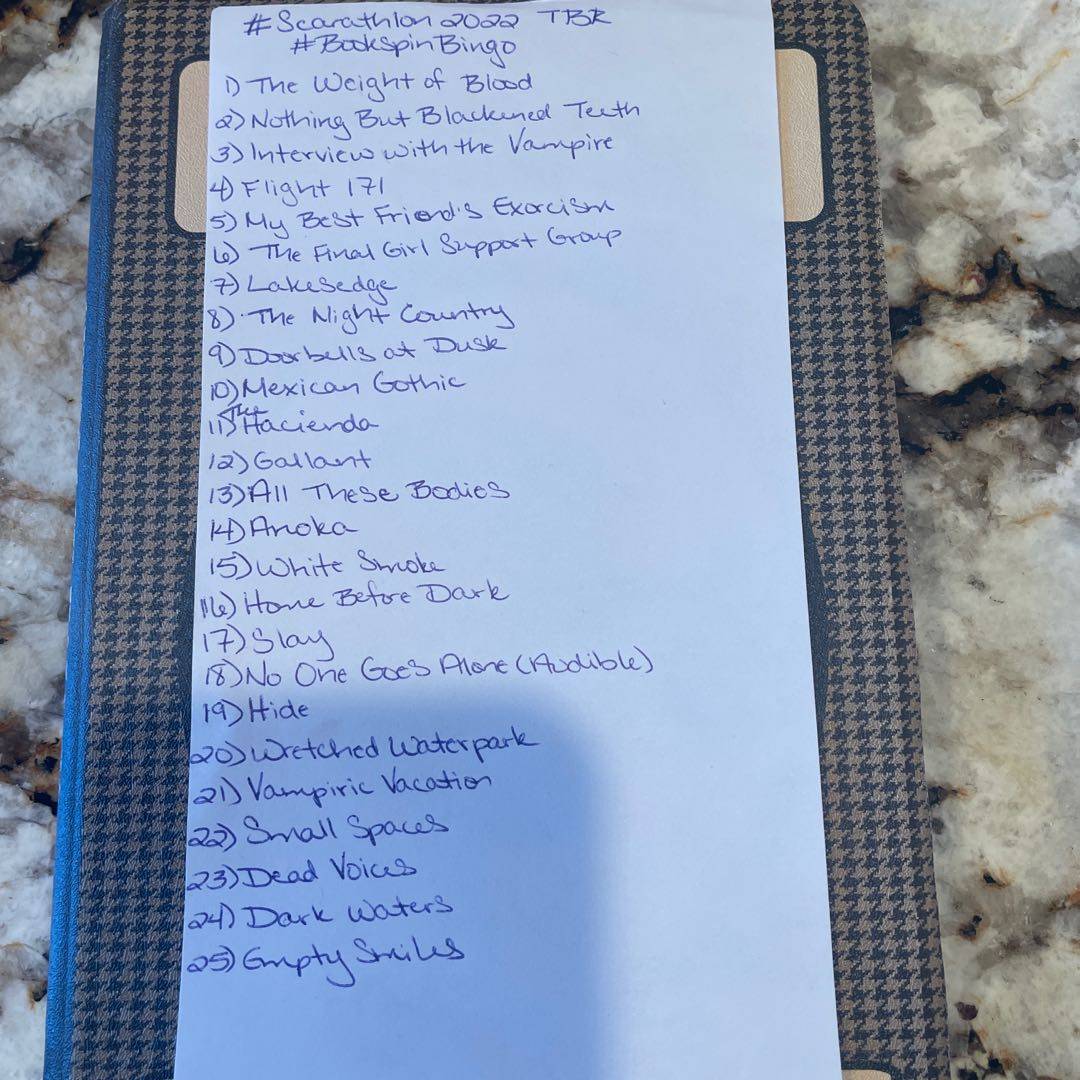 #Scarathlon 2022 TBR
#BookspinBingo
1) The Weight of Blood
2) Nothing But Blackened Teeth
3) Interview with the Vampire
4) Flight 171
5) My Best Friend's Exorcism
6) The Final Girl Support Group
7) Lakesedge
8) The Night Country
9) Doorbells at Dusk
10) Mexican Gothic
11) The Hacienda
12) Gallant
13) All These Bodies
14) Anoka
15) White Smoke
16) Home Before Dark
17) Slay
18) No One Goes Alone (Audible)
19) Hide
20) Wretched Waterpark
21) Vampiric Vacation
22) Small Spaces
23) Dead Voices
24) Dark Waters
25) Empty Smiles